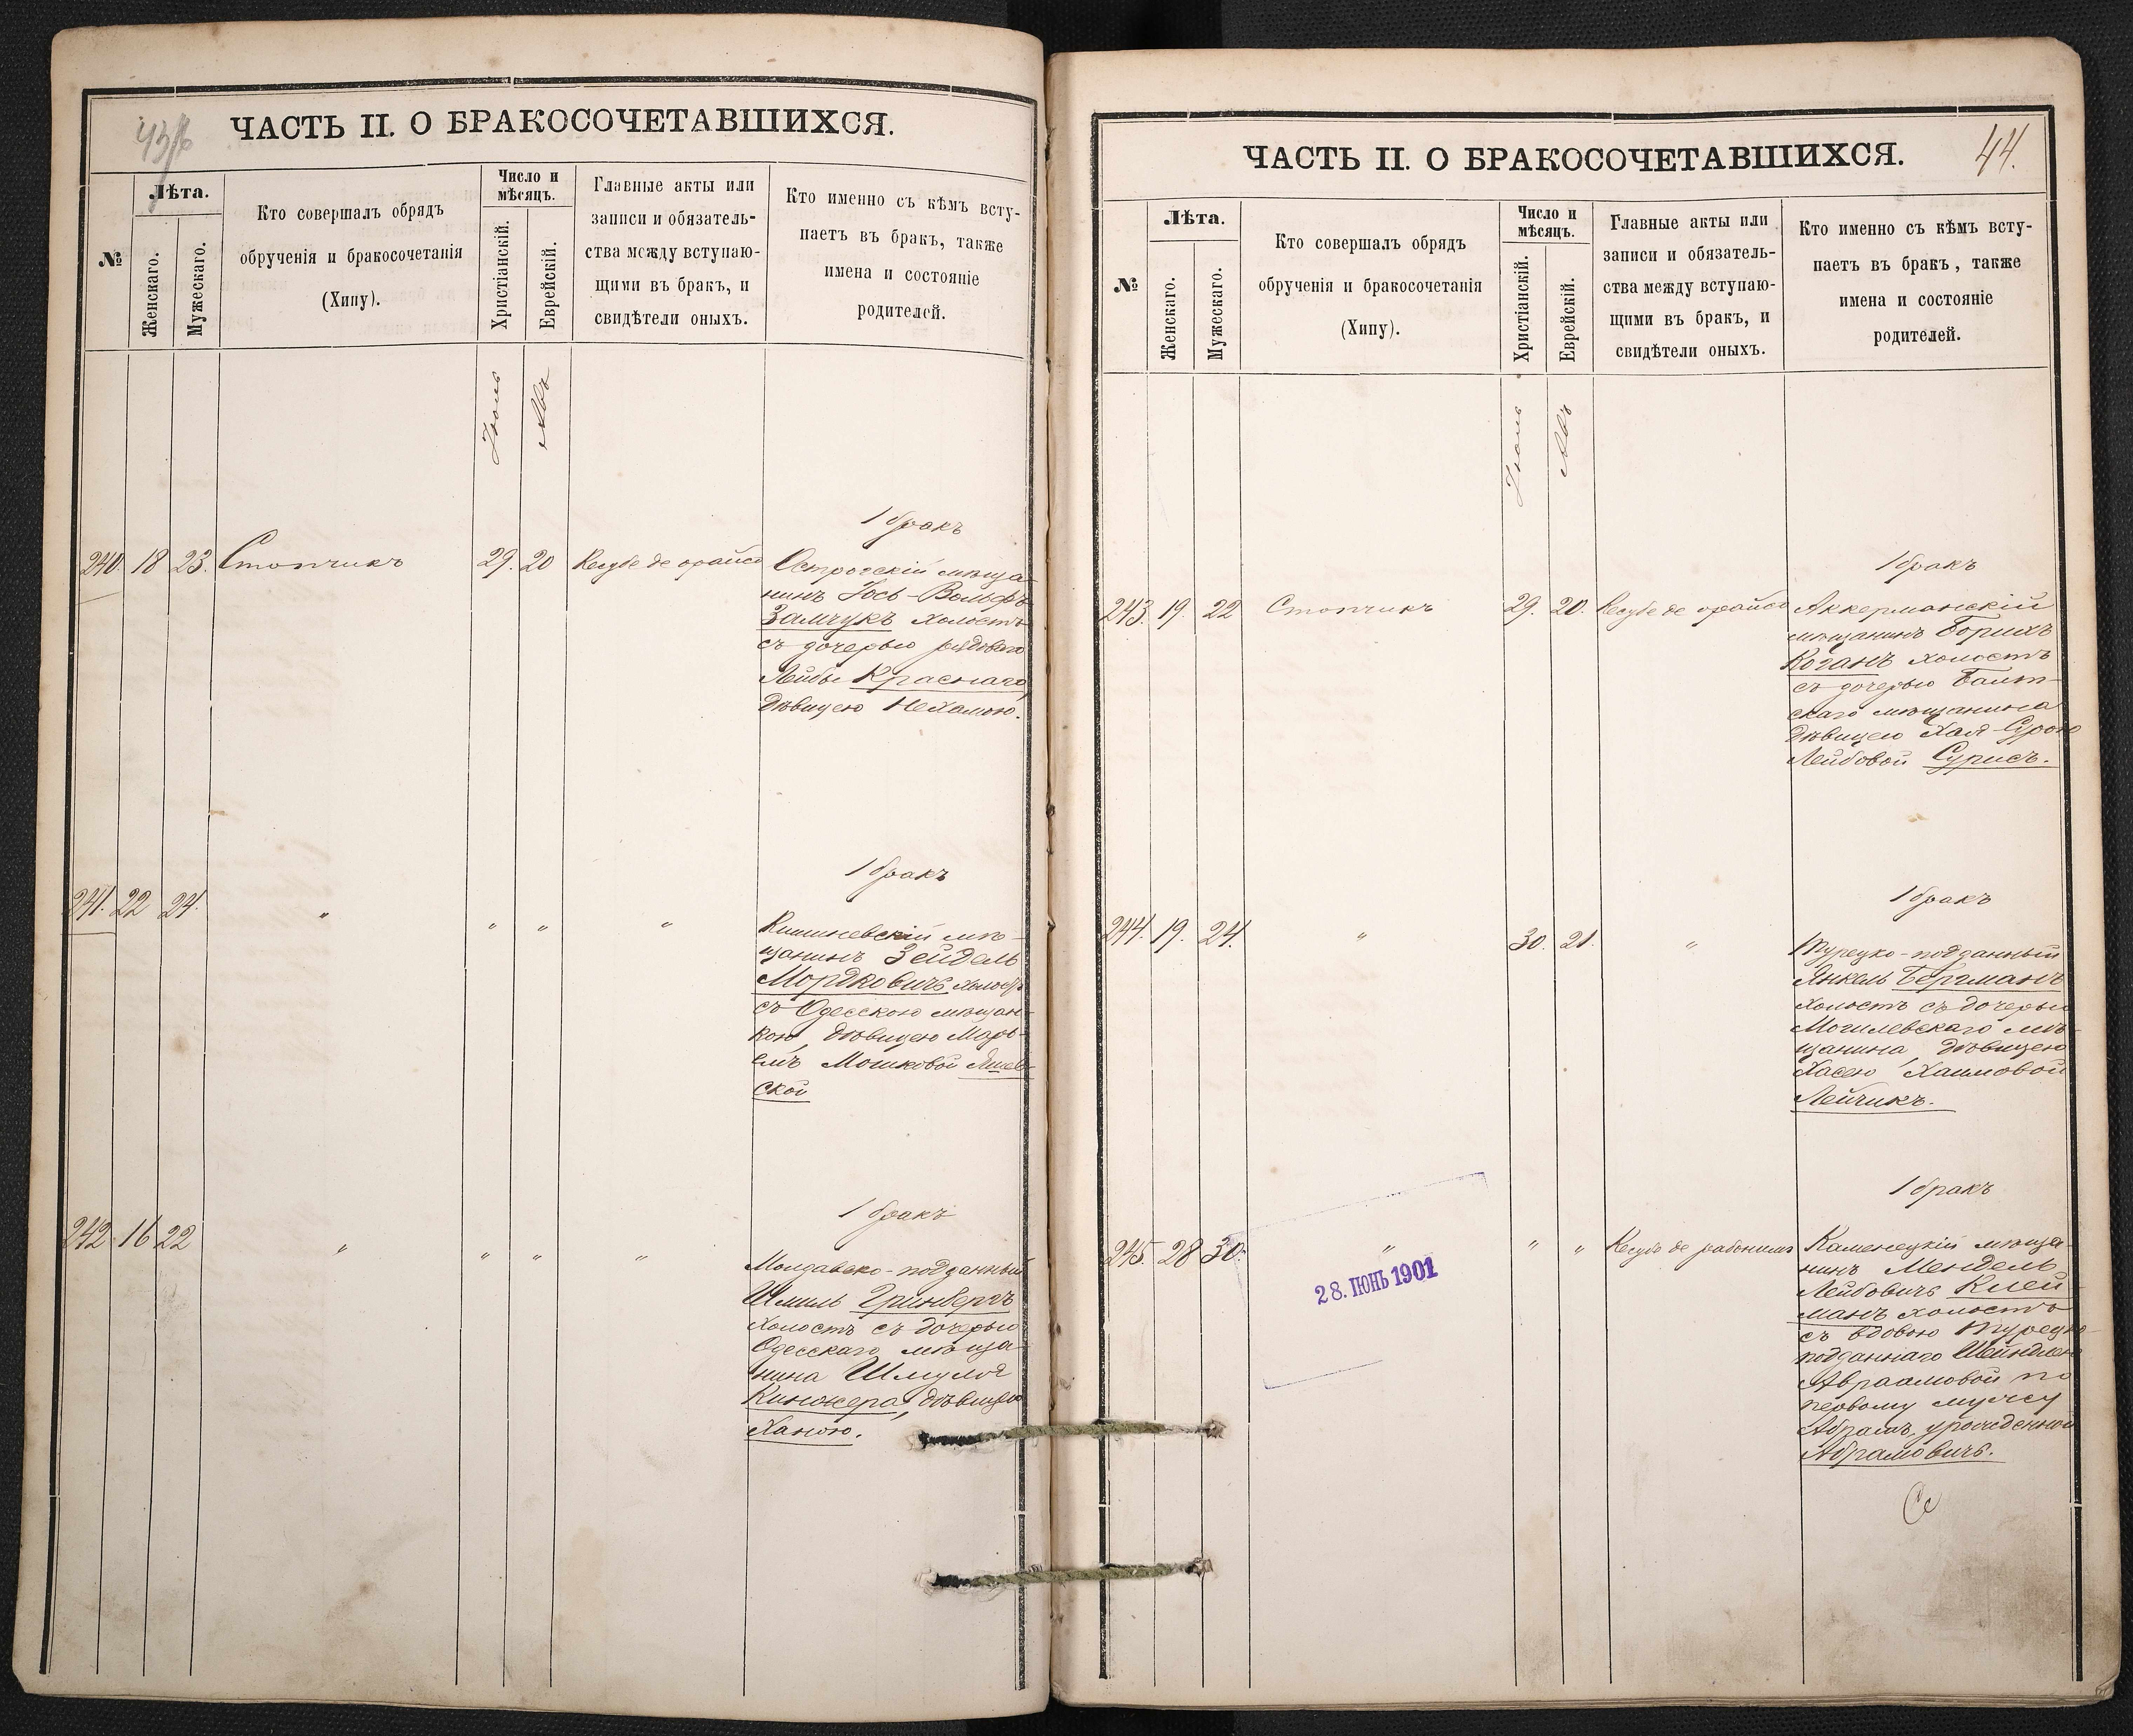 43/б
ЧАСТЬ II. О БРАКОСОЧЕТАВШИХСЯ.
№
Лѣта.
Женскаго.
Мужескаго.
Кто совершалъ обрядъ
обрученія и бракосочетанія
(Хипу).
Число и
мѣсяцъ.
Христіанскій.
Еврейскій.
Главные акты или
записи и обязатель-
ства между вступаю-
щими въ бракъ, и
свидѣтели оныхъ.
Кто именно съ кѣмъ всту-
паетъ въ бракъ, также
имена и состояніе
родителей.
Іюль
Авъ
1 бракъ
240. 18 23. Стопчикъ 29. 20 Кесубе де орайсо Острогскій мѣща-
нинъ Іось-Вольфъ
Замчукъ холостъ
съ дочерью рядоваго
Лейбы Краснаго,
дѣвицею Нехамою.
1 бракъ
241. 22 24. " " " " Кишиневскій мѣ-
щанинъ Зейдель
Мордковичъ холостъ
съ Одесскою мѣщан-
кою, дѣвицею Марь-
емъ Мошковой
ской
1 бракъ
242. 16 22 " " " " Молдавско-подданный
Шмиль Гринбергъ
холостъ съ дочерью
Одесскаго мѣща-
нина Шмуля
Кинжера, дѣвицею
Ханою.
44.
ЧАСТЬ II. О БРАКОСОЧЕТАВШИХСЯ.
№
Лѣта.
Женскаго.
Мужескаго.
Кто совершалъ обрядъ
обрученія и бракосочетанія
(Хипу).
Число и
мѣсяцъ.
Христіанскій.
Еврейскій.
Главные акты или
записи и обязатель-
ства между вступаю-
щими въ бракъ, и
свидѣтели оныхъ.
Кто именно съ кѣмъ всту-
паетъ въ бракъ, также
имена и состояніе
родителей.
Іюль
Авъ
1 бракъ
243. 19. 22 Стопчикъ 29. 20. Кесубе де орайсо Аккерманскій
мѣщанинъ Борихъ
Коганъ холостъ
съ дочерью Балт-
скаго мѣщанина
дѣвицею Хая-Сурою
Лейбовой Сурисъ.
1 бракъ
244. 19. 24. " 30. 21. " Турецко-подданный
Янкель Бергманъ
холостъ съ дочерью
Могилевскаго мѣ-
щанина, дѣвицею
Хасею Хаимовой
Лейчикъ.
1 бракъ
245. 28 30. " " " Кесубе де рабонимъ Каменецкій мѣща-
нинъ Мендель
Лейбовичъ Клей-
манъ холостъ
съ вдовою Турецко-
подданнаго Шейндлею
Авраамовой по
первому мужу
Абрамъ, урожденной
Абрамовичъ.
28. ІЮНЬ 1901